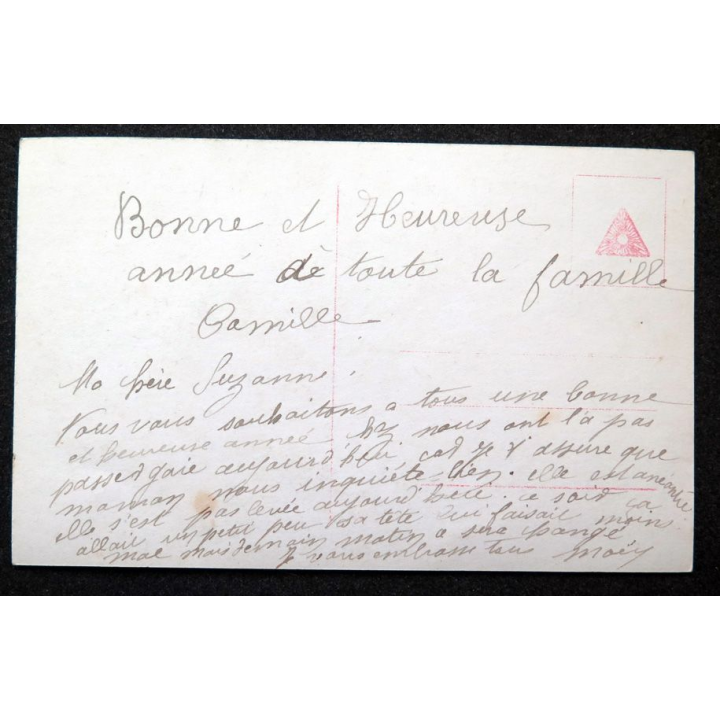 Bonne et Heureuse
année de toute la famille
Camille
Ma chère Suzanne.
Nous vous souhaitons a tous une bonne
et heureuse année nous ont la pas
passer gaie aujourd hui car je t assure que
maman nous inquiète bien. elle est
elle s'est pas levée aujourd hui. ce soir ça
allait un petit peu sa tête qui faisait moins
mal mais demain matin a sera changé
Je vous embrasse tous